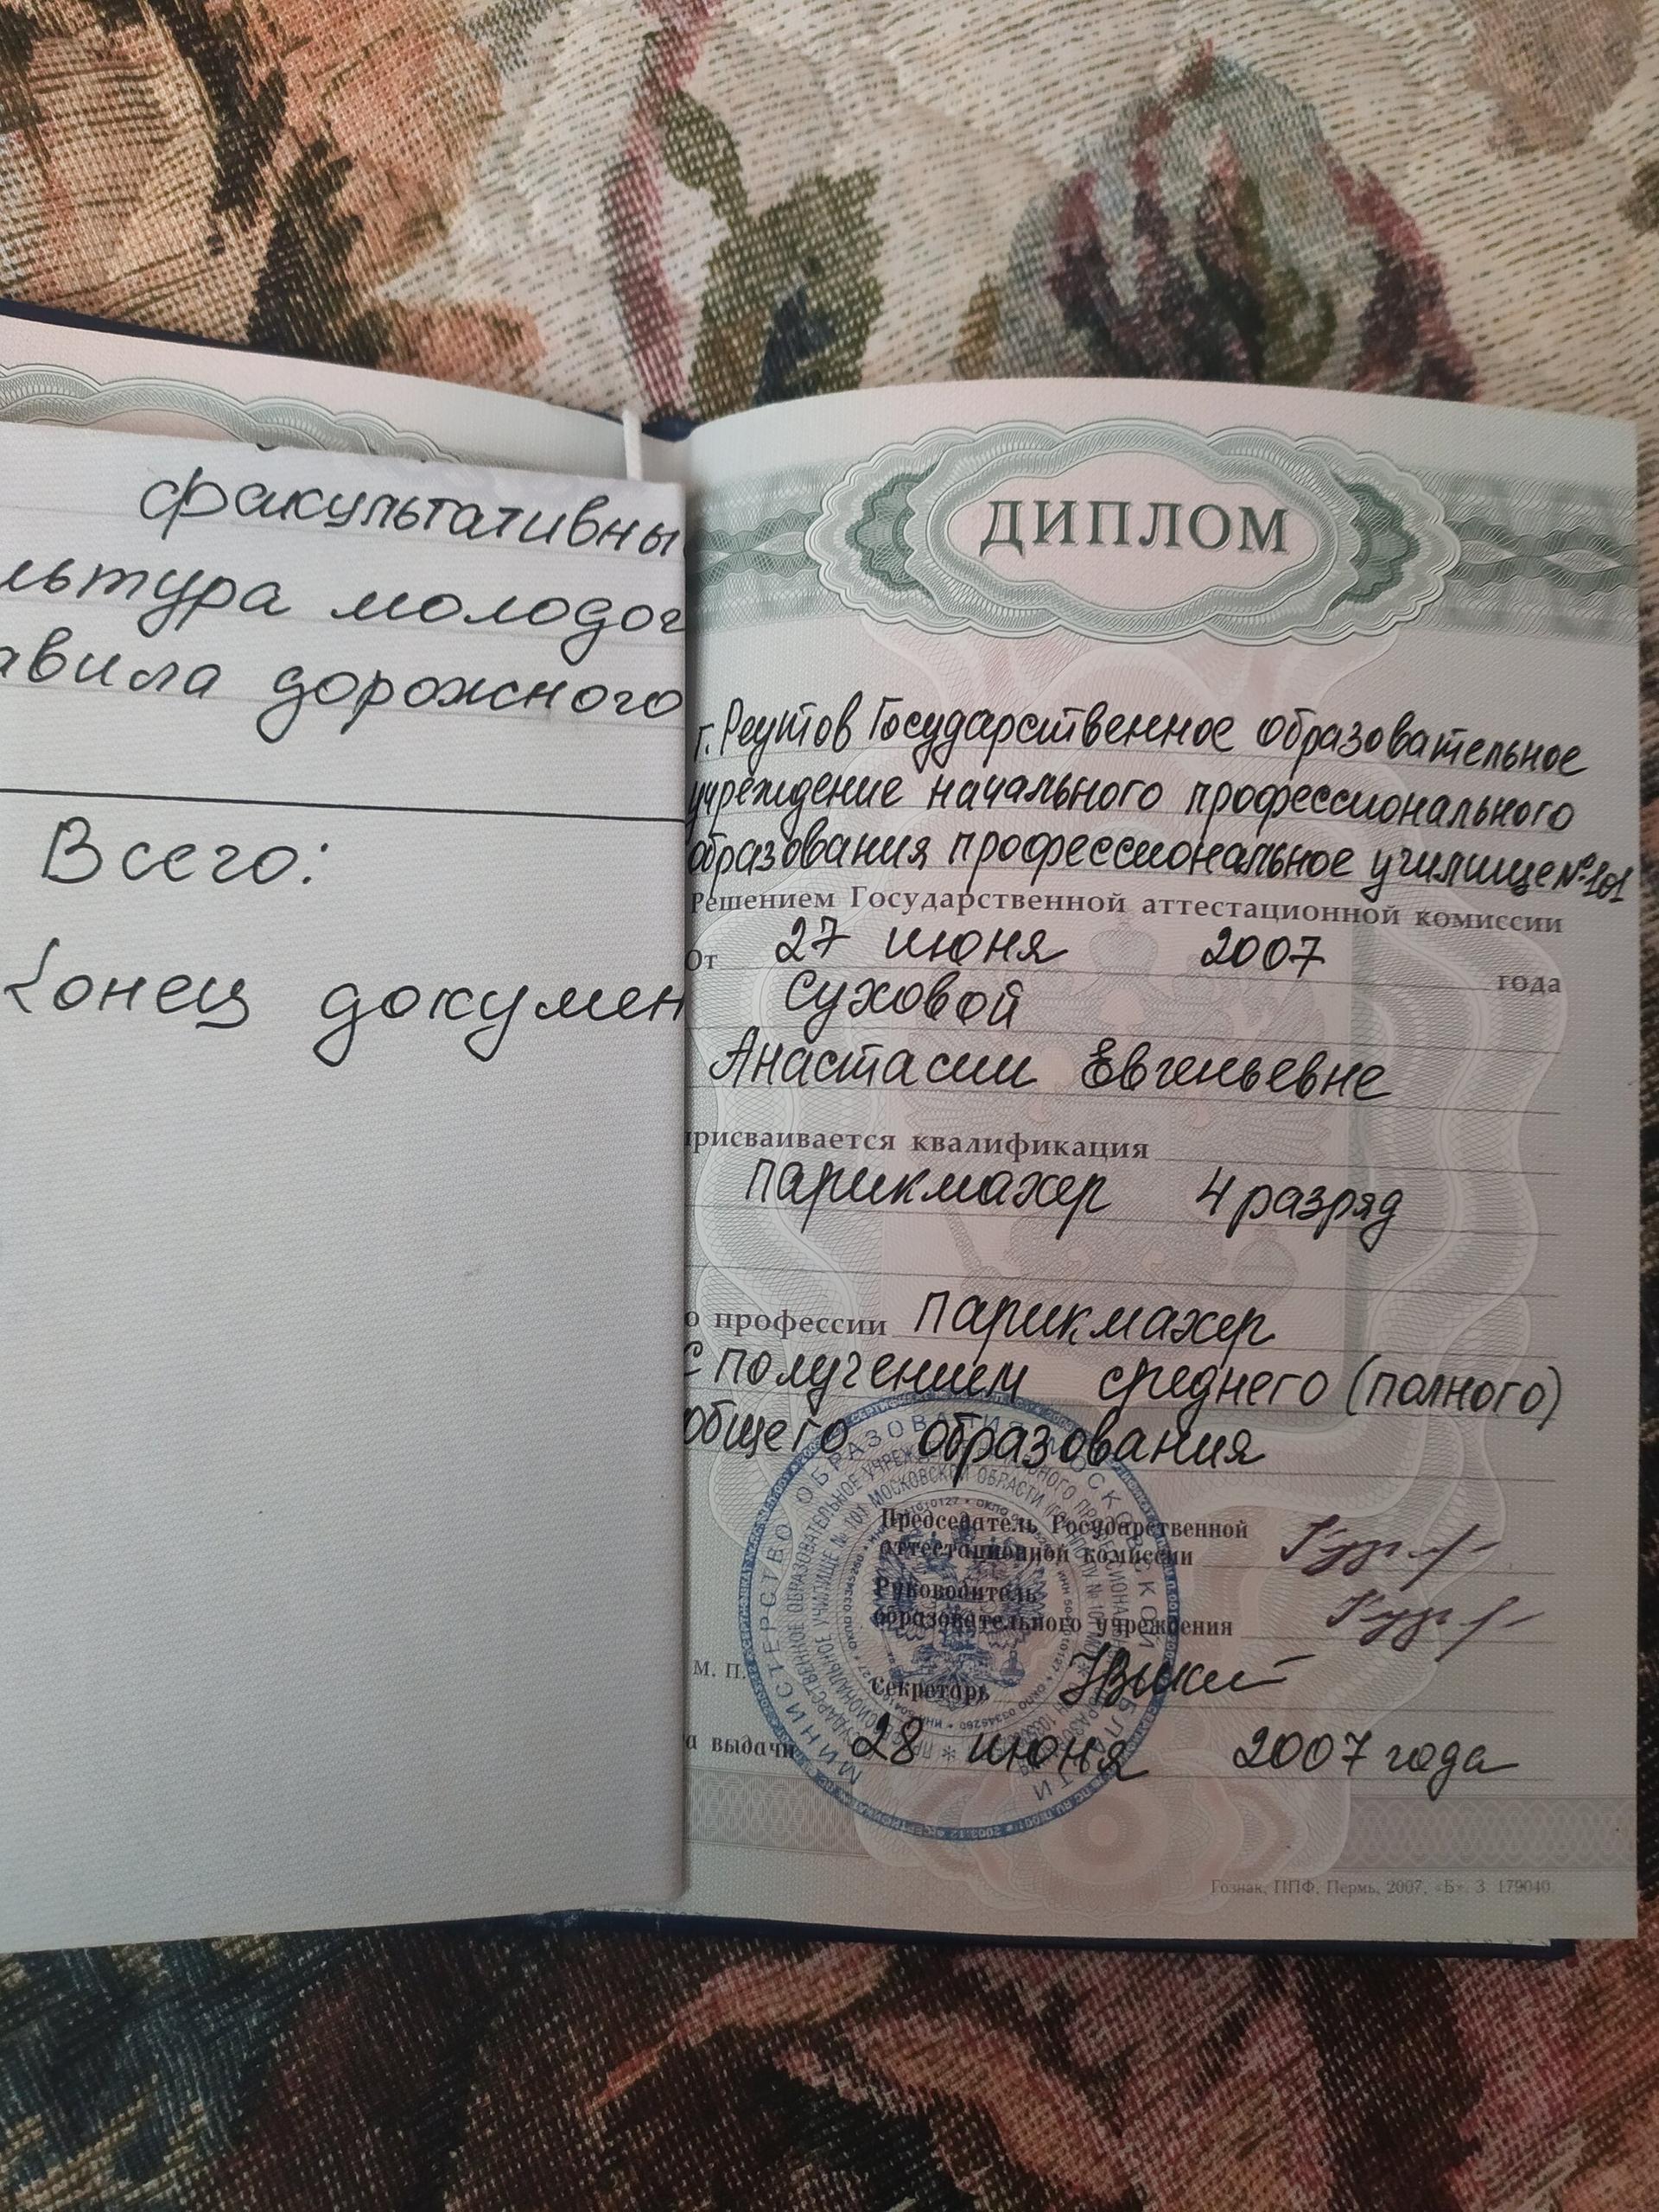 факультативны
льтура молодог
авила дорожного
Всего:
Конец докумен
ДИПЛОМ
г. Реутов Государственное образовательное
учреждение начального профессионального
образования профессиональное училище №101
Решением Государственной аттестационной комиссии
От 27 июня 2007 года
Суховой
Анастасии Евгеньевне
присваивается квалификация
парикмахер 4 разряд
о профессии парикмахер
с получением среднего (полного)
общего образования
Председатель Государственной
аттестационной комиссии
Руководитель
образовательного учреждения
М. П.
Секретарь
а выдачи 28 июня 2007 года
МИНИСТЕРСТВО ОБРАЗОВАНИЯ МОСКОВСКОЙ ОБЛАСТИ
Гознак, ППФ, Пермь, 2007, «Б». З. 179040.